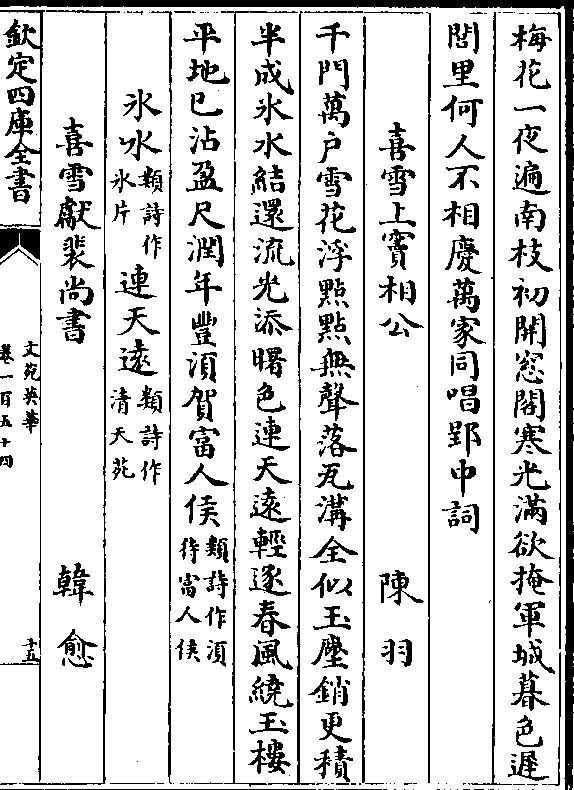 梅花一夜遍南枝初開窓閣寒光滿欲掩軍城暮色遲
閭里何人不相慶萬家同唱郢中詞
喜雪上竇相公 陳羽
千門萬户雪花浮㸃㸃無聲落瓦溝全似玉塵銷更積
半成氷水結還流光添曙色連天逺輕逐春風繞玉樓
平地已沾盈尺潤年豐須賀富人侯類詩作須待富人侯
氷水類詩作氷片連天逺類詩作清天苑
喜雪獻裴尚書 韓愈
欽定四庫全書
文苑英華
卷一百五十四
十五